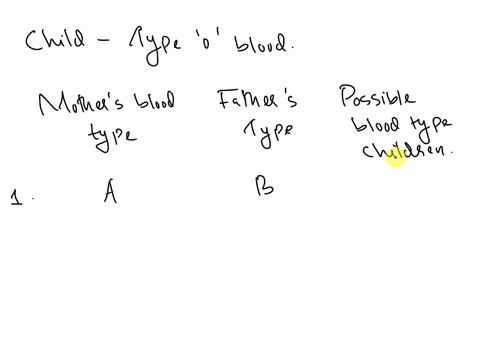 Child - Type 'o' blood.
Mother's blood type
Father's Type
Possible blood type children.
1. A B